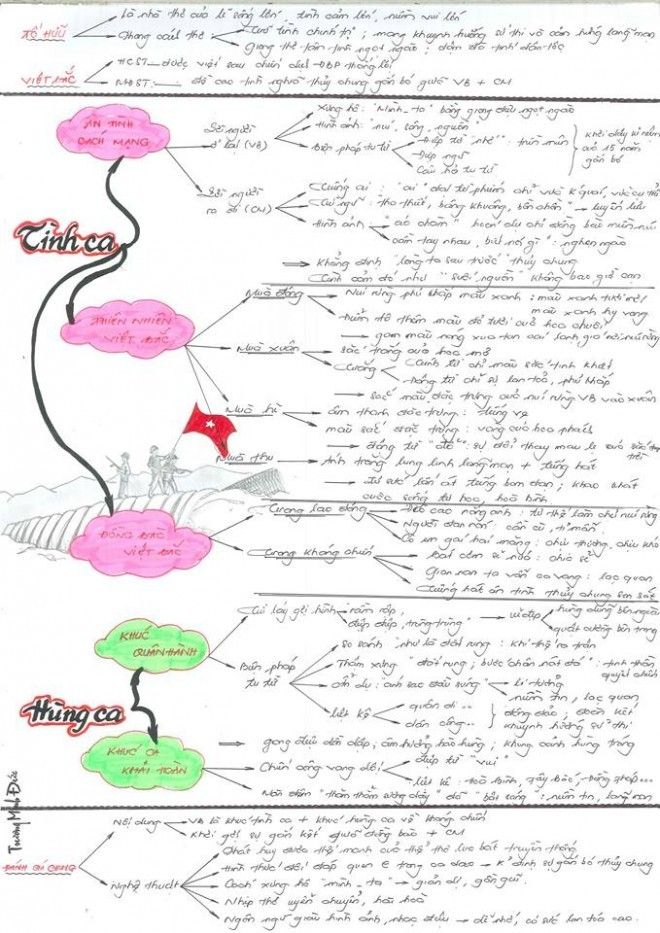 TỐ HỮU
Là nhà thơ của lẽ sống lớn, tình cảm lớn, niềm vui lớn
Phong cách thơ
Trữ tình chính trị; mang khuynh hướng sử thi và cảm hứng lãng mạn
Giọng thơ tâm tình ngọt ngào; đậm đà tính dân tộc
VIỆT BẮC
HCST được viết sau chiến dịch ĐBP thắng lợi
đề cao tình nghĩa thủy chung gắn bó giữa VB + CM
ÂN TÌNH
CÁCH MẠNG
Lời người
ở lại (VB)
Xưng hô: "Mình - ta" bằng giọng điệu ngọt ngào
Hình ảnh: "núi, sông, nguồn"
Biện pháp tu từ
Điệp từ "nhớ"
Điệp ngữ
Câu hỏi tu từ
Khơi dậy kỉ niệm
của 15 năm
gắn bó
Lời người
ra đi (CM)
Từ ngữ: "tha thiết, bâng khuâng, bồn chồn"
Hình ảnh
"áo chàm"
cầm tay nhau, biết nói gì": nghẹn ngào
Khẳng định lòng ta sau trước" thủy chung
Tình cảm đó như "suối nguồn" không bao giờ cạn
Tình ca
THIÊN NHIÊN
VIỆT BẮC
Mùa đông
Núi rừng phủ khắp màu xanh: màu xanh tươi mới
màu xanh hy vọng
Điểm tô thắm màu đỏ tươi của hoa chuối
gam màu nóng xua tan cái lạnh giá nơi núi rừng
Mùa xuân
sắc trắng của hoa mơ
Trắng
Tính từ chỉ màu sắc tinh khiết
Động từ chỉ sự lan toả, phủ khắp
sắc màu đặc trưng của núi rừng VB vào xuân
Mùa hè
âm thanh đặc trưng: tiếng ve
màu sắc đặc trưng: vàng của hoa phách
động từ "đổ" sự đổi thay màu
Mùa thu
Ánh trăng lung linh lãng mạn + tiếng hát
cuộc sống tự do, hoà bình
ĐỒNG BÀO
VIỆT BẮC
Trong lao động
Đèo cao nắng ánh: tư thế làm chủ núi rừng
Người đan nón: cần cù, tỉ mẩn
Cô em gái hái măng: chịu thương, chịu khó
Trong kháng chiến
bát cơm sẻ nửa: chia sẻ
Gian nan ta vẫn ca vang: lạc quan
Tiếng hát ân tình thủy chung son sắt
Hùng ca
KHÚC
QUÂN HÀNH
Từ láy gợi hình
"rầm rập,
điệp điệp, trùng trùng"
vẻ đẹp
hùng dũng bên ngoài
quật cường bên trong
Biện pháp
tu từ
So sánh "như là đất rung: khí thế ra trận
Thậm xưng "đất rung; bước chân nát đá": tinh thần
quyết chiến
ẩn dụ: "ánh sao đầu súng"
lí tưởng
niềm tin, lạc quan
liệt kê
quân đi...
dân công...
đông đảo, đoàn kết
khuynh hướng sử thi
KHÚC CA
KHẢI HOÀN
giọng điệu dồn dập; âm hưởng hào hùng; khung cảnh hùng tráng
Chiến công vang dội
điệp từ "vui"
liệt kê: Hoà Bình, Tây Bắc, Đồng Tháp...
"thăm thẳm sương dày"
"bật sáng": niềm tin, lãng mạn
Trương Minh Đức
ĐÁNH GIÁ CHUNG
Nội dung
VB là khúc tình ca + khúc hùng ca về kháng chiến
Khơi gợi sự gắn kết giữa đồng bào + CM
Nghệ thuật
Phát huy được thế mạnh của thể thơ lục bát truyền thống
Hình thức đối đáp quen thuộc trong ca dao → khẳng định sự gắn bó thủy chung
Cách xưng hô "mình - ta" → giản dị, gần gũi
Nhịp thơ uyển chuyển, hài hoà
Ngôn ngữ giàu hình ảnh, nhạc điệu → dễ nhớ, có sức lan toả cao.